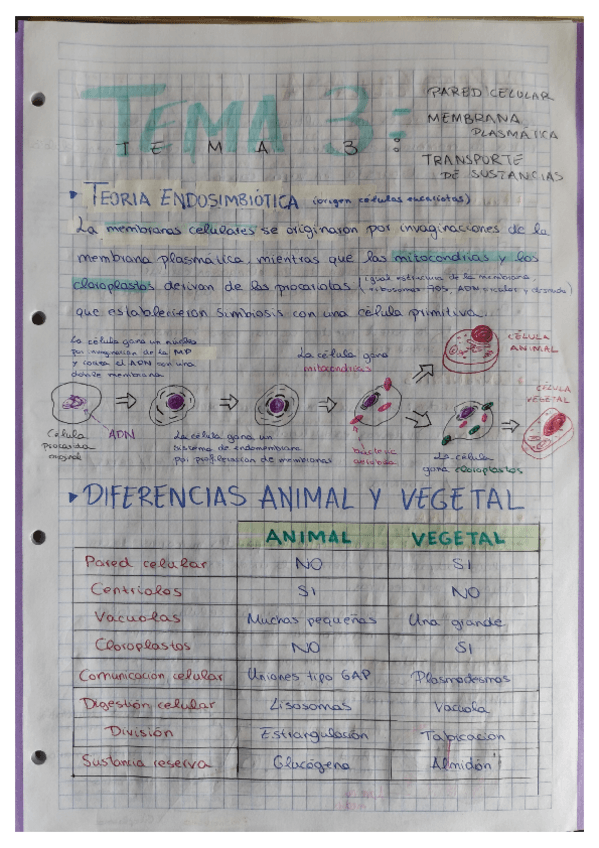 TEMA 3:
T E M A 3 :
PARED CELULAR
MEMBRANA PLASMÁTICA
TRANSPORTE DE SUSTANCIAS
TEORIA ENDOSIMBIÓTICA (origen células eucariotas)
La membranas celulares se originaron por invaginaciones de la
membrana plasmática, mientras que las mitocondrias y los
cloroplastos derivan de los procariotas (igual estructura de la membrana, ribosomas 70S, ADN circular y desnudo)
que establecieron simbiosis con una célula primitiva.
La célula gana un núcleo
por invaginación de la MP
y contra el ADN con una
doble membrana
La célula gana
mitocondrias
CÉLULA
ANIMAL
CÉLULA
VEGETAL
Célula
procariota
ADN
La célula gana un
sistema de endomembrana
por proliferación de membranas
La célula
gana cloroplastos
DIFERENCIAS ANIMAL Y VEGETAL
ANIMAL VEGETAL
Pared celular NO SI
Centriolos SI NO
Vacuolas Muchas pequeñas Una grande
Cloroplastos NO SI
Comunicacion celular Uniones tipo GAP Plasmodesmos
Digestión celular Lisosomas Vacuola
División Estrangulación Tabicación
Sustancia reserva Glucógeno Almidón